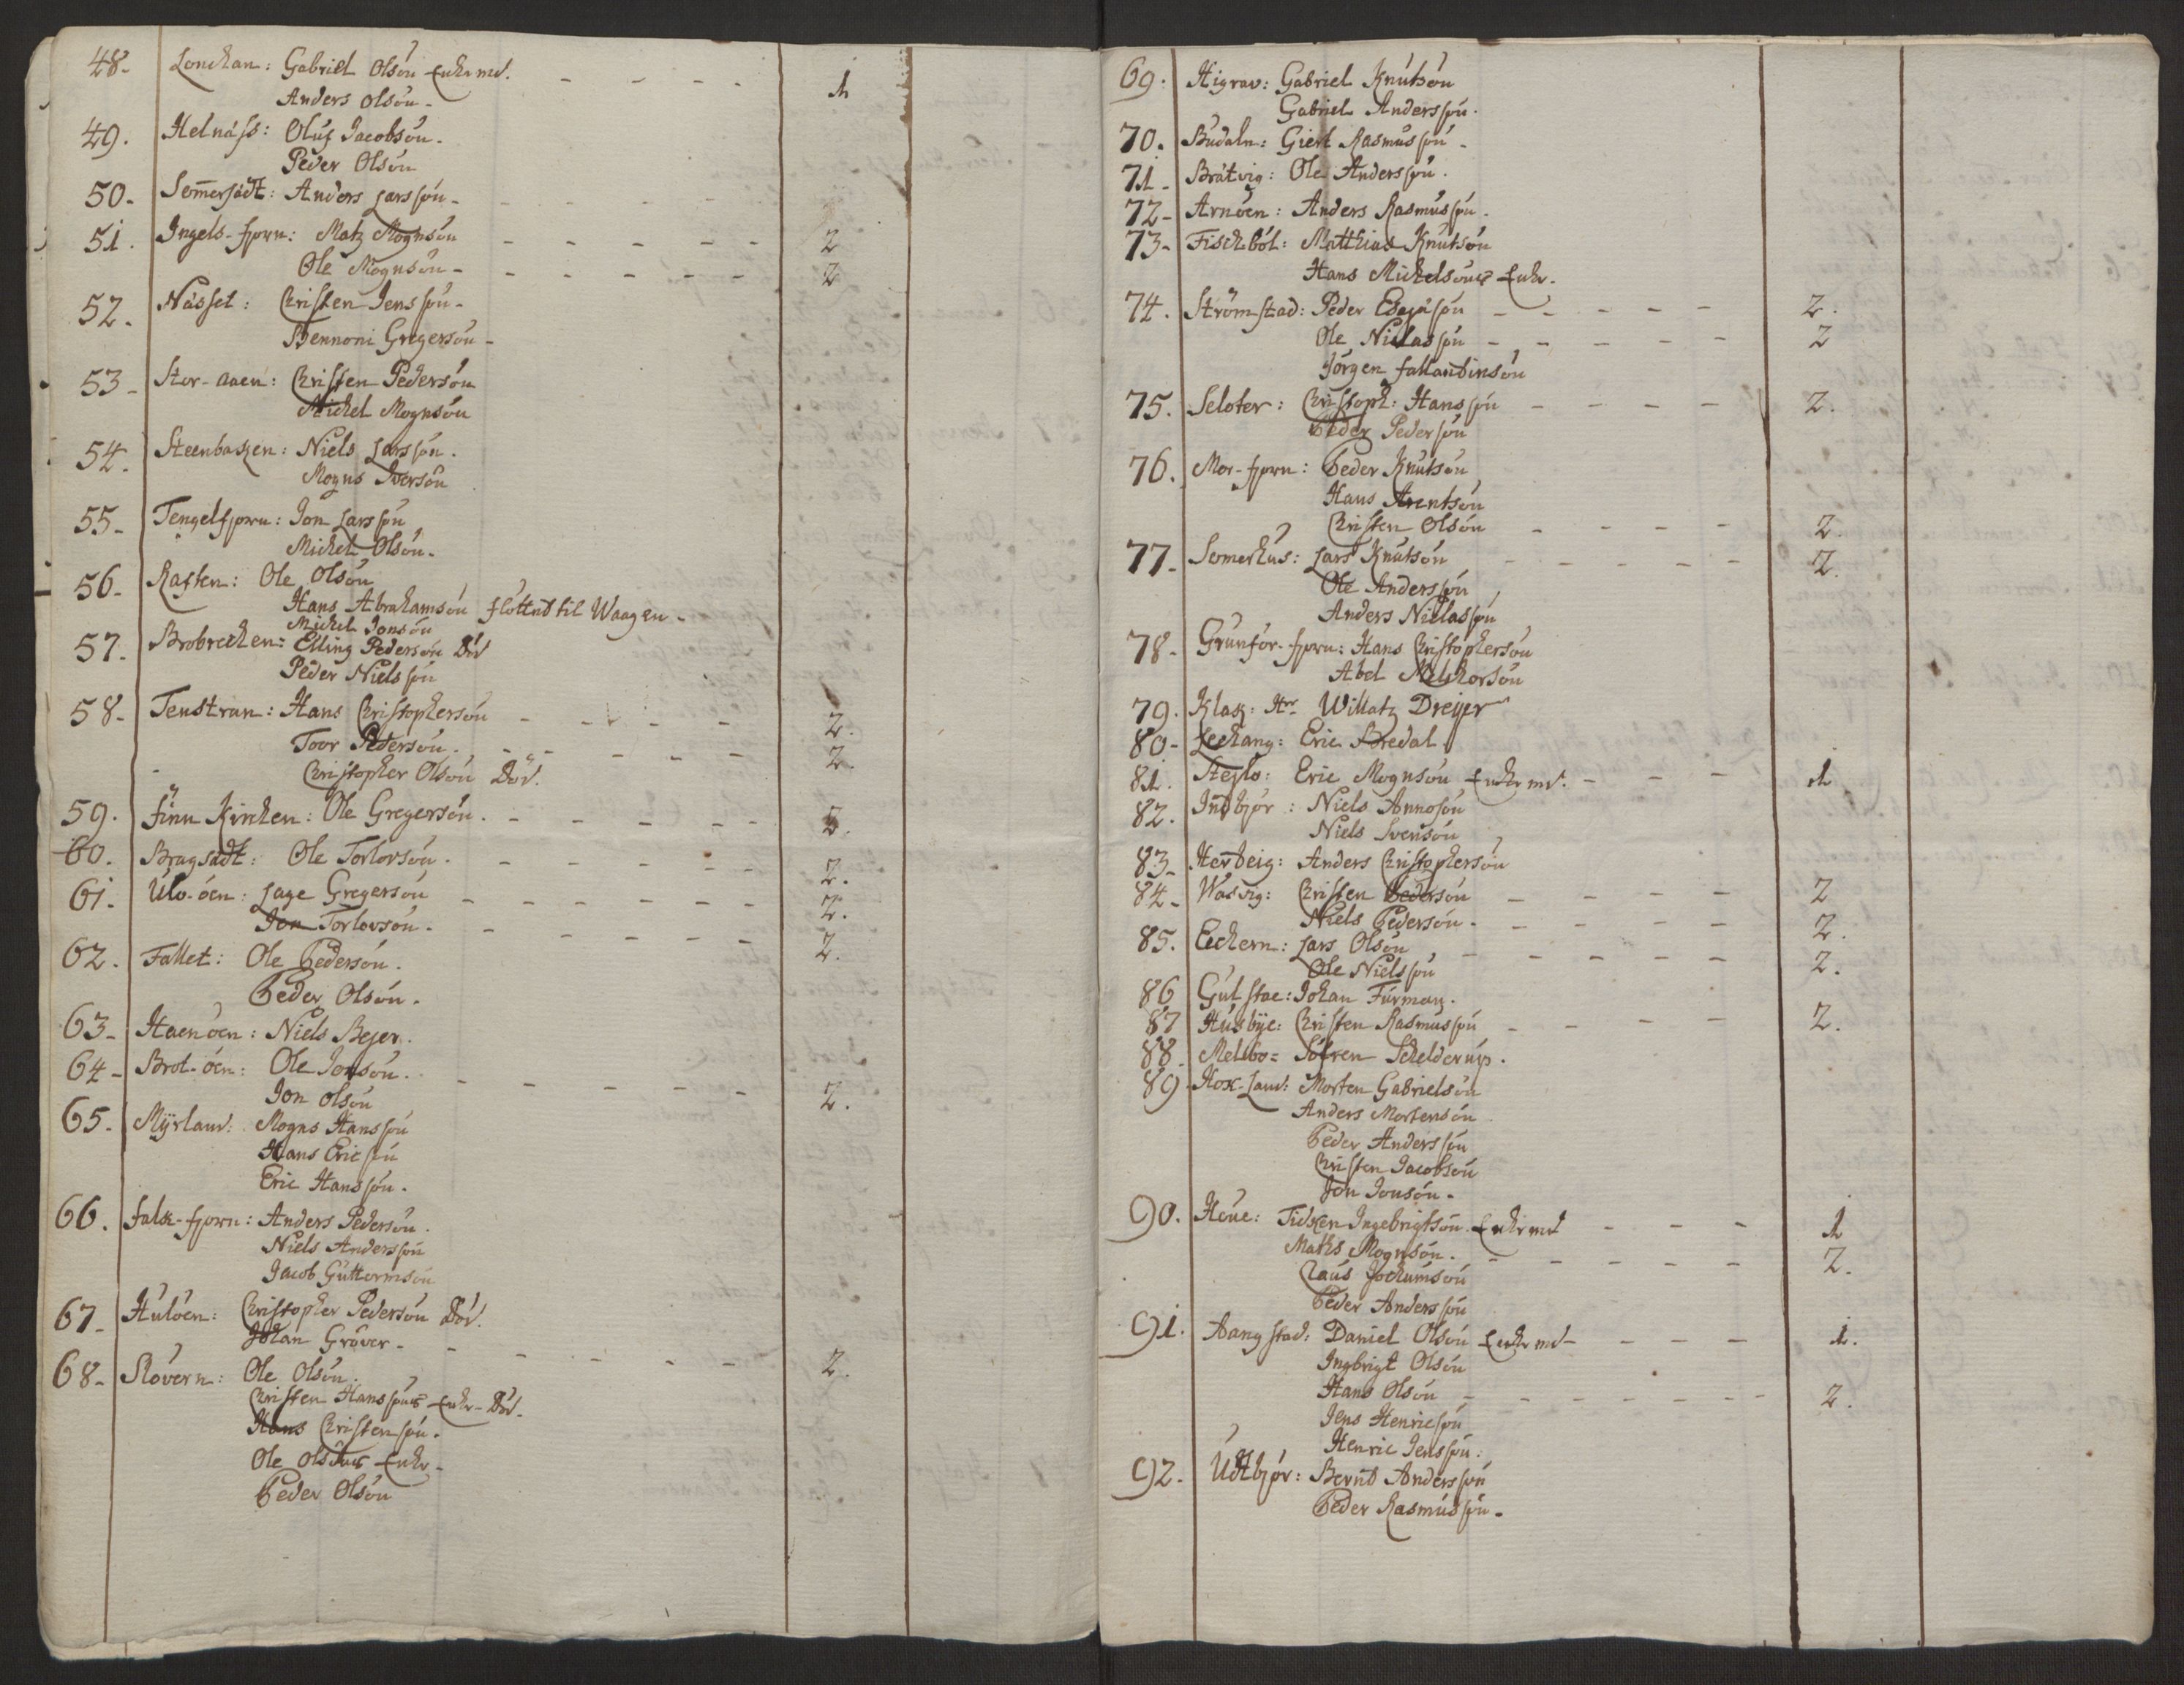 48- Lonckan: Gabriel Olsön Enkemd. - - - - 1
Anders Olsön-
49. Helnäss: Oluf Jacobsön.
Peder Olsön
50- Somersådt: Anders Larssön- - - - - - 2
51. Ingels-fjorn: Matz Mognsön - - - - - 2
Ole Mognsön- - - - - - 2
52. Nässet: Christen Jenssön-
Bennoni Gregersön-
53- Stor-aaen: Christen Pedersön
Michel Mognsön
54. Steenbaken: Niels Larssön.
Mogns Iversön
55- Tengelfjorn: Jon Larssön
Michel Olsön-
56- Raften: Ole Olsön
Hans Abrahamsön flöttud til Waagen-
Michel Jonsön
57. Brobrecken: Elling Pedersön Död
Peder Nielssön
58- Tenstran: Hans Christophersön - - - - 2.
Toor Pedersön. - - - - - 2.
Christopher Olsön Död.
59. Finn Kircken: Ole Gregersön. - - - - - 3.
60. Bragsadt: Ole Torlovsön. - - - - - 2.
61. Ulv-öen: Lage Gregersön - - - - - - 2.
Jon Torlovsön. - - - - - 2.
62. Fallet: Ole Pedersön.
Peder Olsön.
63- Haenöen: Niels Bejer.
64- Brot-öen: Ole Jonsön. - - - - - -
Jon Olsön 2.
65- Mÿrland: Mogns Hanssön
Hans Ericsön
Eric Hanssön.
66. Falk-fjorn: Anders Pedersön.
Niels Anderssön
Jacob Guttormsön
67- Hulöen: Christopher Pedersön Död.
Johan Gröver- - - - - - 2.
68- Slövern: Ole Olsön.
Christen Hanssöns Enke- Död-
Hans Christensön.
Ole Olsöns Enke-
Peder Olsön
69. Higrav: Gabriel Knutsön
Gabriel Anderssön.
70. Budaln: Giert Rasmussön-
71- Brätvig: Ole Anderssön.
72- Arnöen: Anders Rasmussön.
73- Fischböl: Matthias Knutsön
Hans Michelsöns Enke.
74. Strömstad: Peder Esajäsön - - - - - 2.
Ole Niclassön - - - - - 2
Jörgen Falландinsön
75. Seloter: Christoph: Hanssön - - - - 2.
Peder Pedersön
76. Mor-fjorn: Peder Knutsön
Hans Arentsön
Christen Olsön - - - - 2.
77- Somerhus: Lars Knutsön - - - - - 2.
Ole Anderssön
Anders Niclassön
78- Grunför-fjorn: Hans Christophersön
Abel Melchorsön
79. Klak: Hr- Willatz Dreÿer
80- Leckang: Eric Bredal
81. Steslo: Eric Mognsön Enke md. - - - 1
82. Indbjör: Niels Annosön
Niels Svensön
83- Herdeig: Anders Christophersön
84- Wasvig: Christen Pedersön - - - - 2
Niels Pedersön. - - - - 2.
85. Eckern: Lars Olsön - - - - - 2.
Ole Nielssön
86 Gulstae: Johan Furman.
87 Husbÿe: Christen Rasmussön - - - - 2.
88. Melbo= Söfren Schelderup.
89. Hox-Land: Morten Gabrielsön
Anders Mortensön
Peder Anderssön
Christen Jacobsön
Jon Jonsön.
90. Heue: Tidsken Ingebrigtsön Enke md - - - 1
Maths Mognsön. - - - - - 2.
Claus Jochumsön
Peder Anderssön
91. Aangstad: Daniel Olsön Enke md- - - - 1.
Ingbrigt Olsön
Hans Olsön - - - - - - 2.
Jens Henricsön
Henric Jenssön.
92- Udtbjör: Bernt Anderssön
Peder Rasmussön-